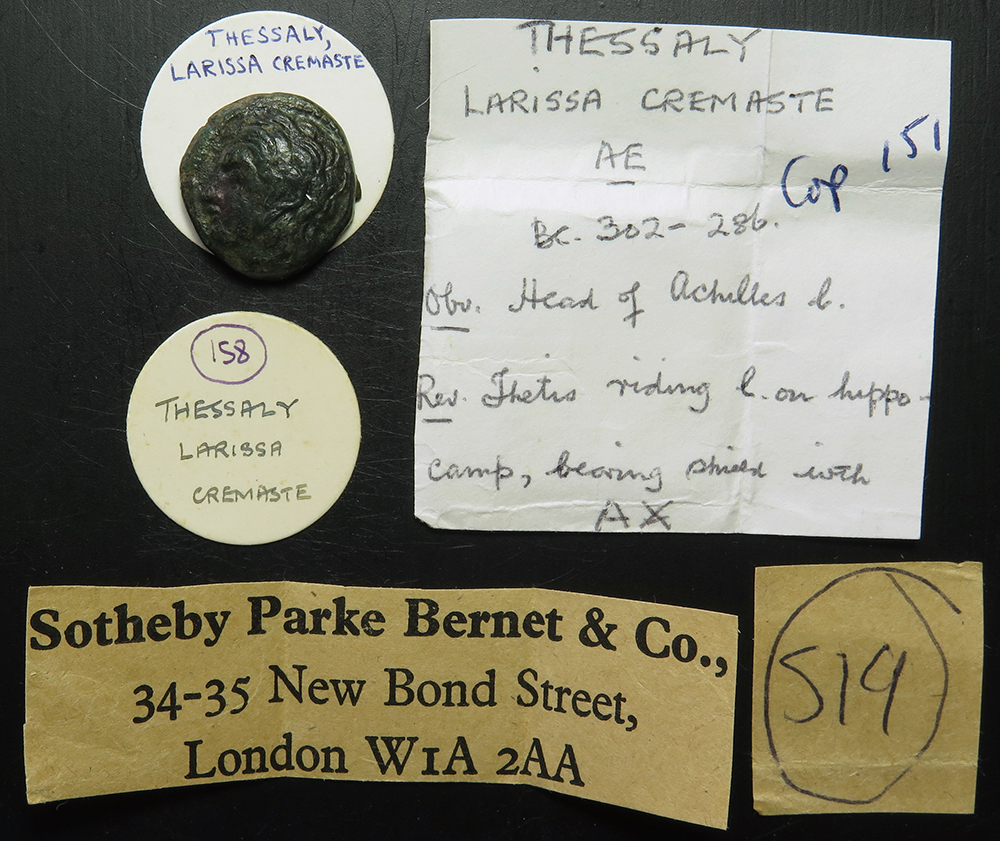 THESSALY,
LARISSA CREMASTE
158
THESSALY
LARISSA
CREMASTE
THESSALY
LARISSA CREMASTE
AE
Cop 151
BC. 302-286.
Obv. Head of Achilles l.
Rev. Thetis riding l. on hippo-
camp, bearing shield with
AX
Sotheby Parke Bernet & Co.,
34-35 New Bond Street,
London W1A 2AA
519